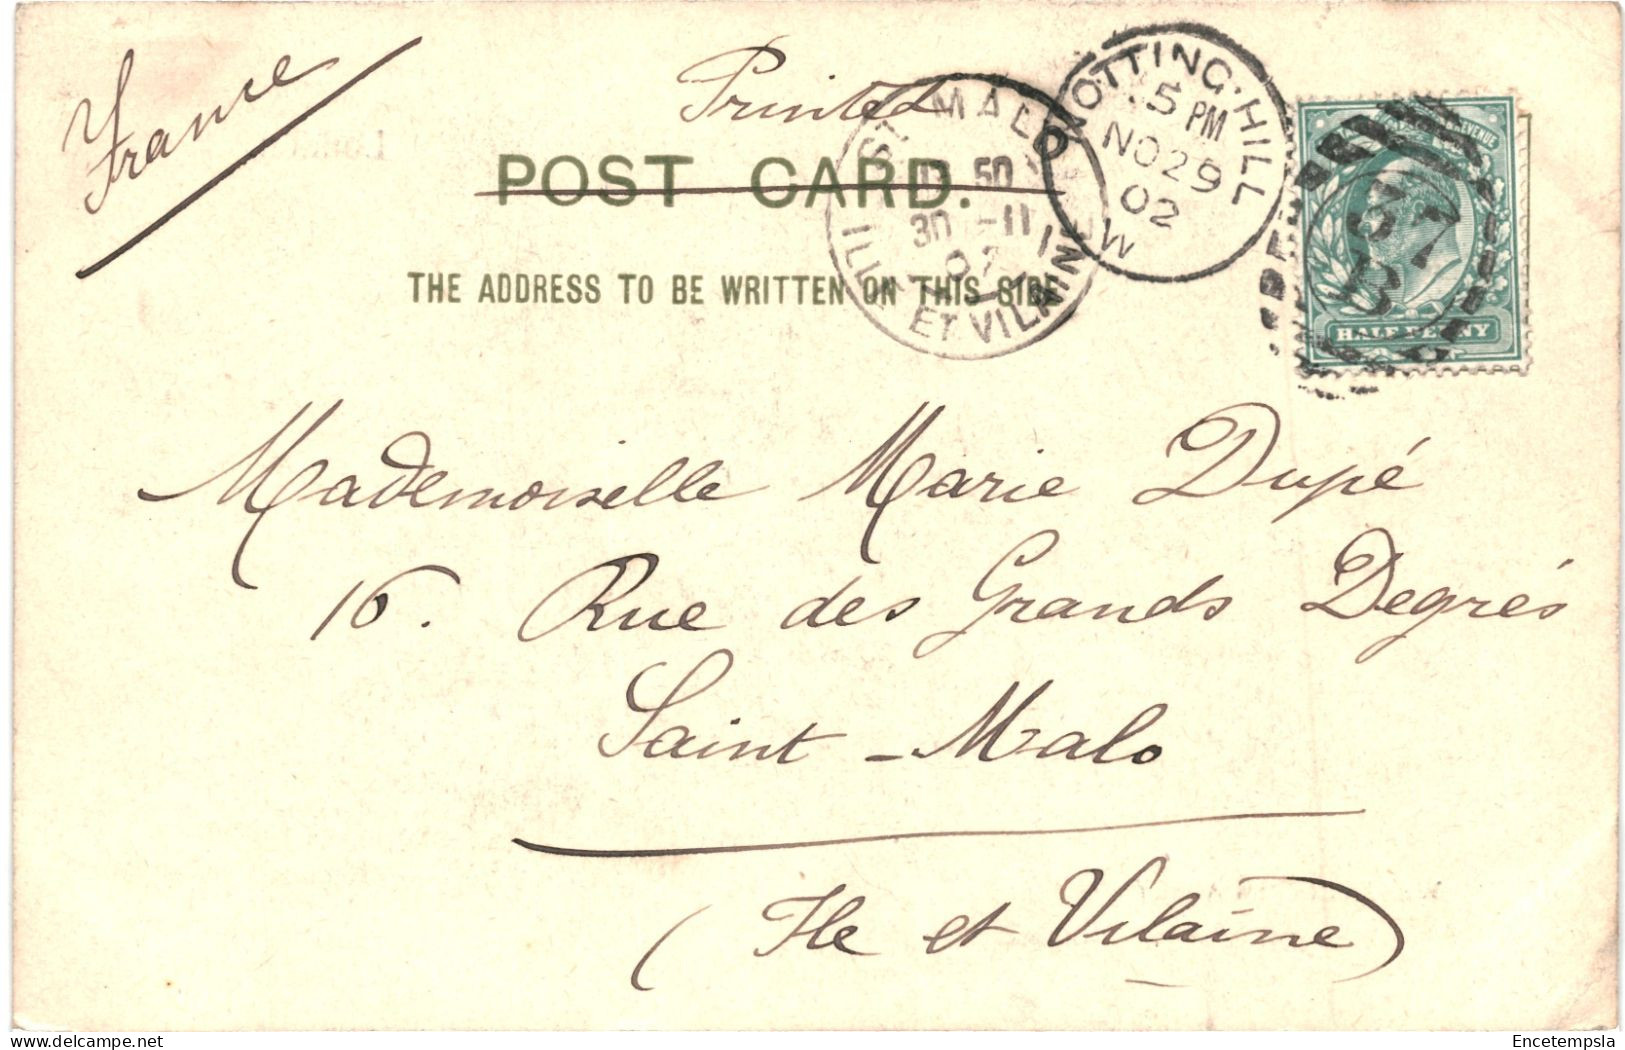 France
Printed
POST CARD.
THE ADDRESS TO BE WRITTEN ON THIS SIDE
ST MALO
50
30 -11
02
ILLE ET VILAINE
NOTTING-HILL
5 PM
NO 29
02
W
REVENUE
37
B
HALF PENNY
Mademoiselle Marie Dupé
16. Rue des Grands Degrés
Saint-Malo
(Ile et Vilaine)
www.delcampe.net
Encetempsla